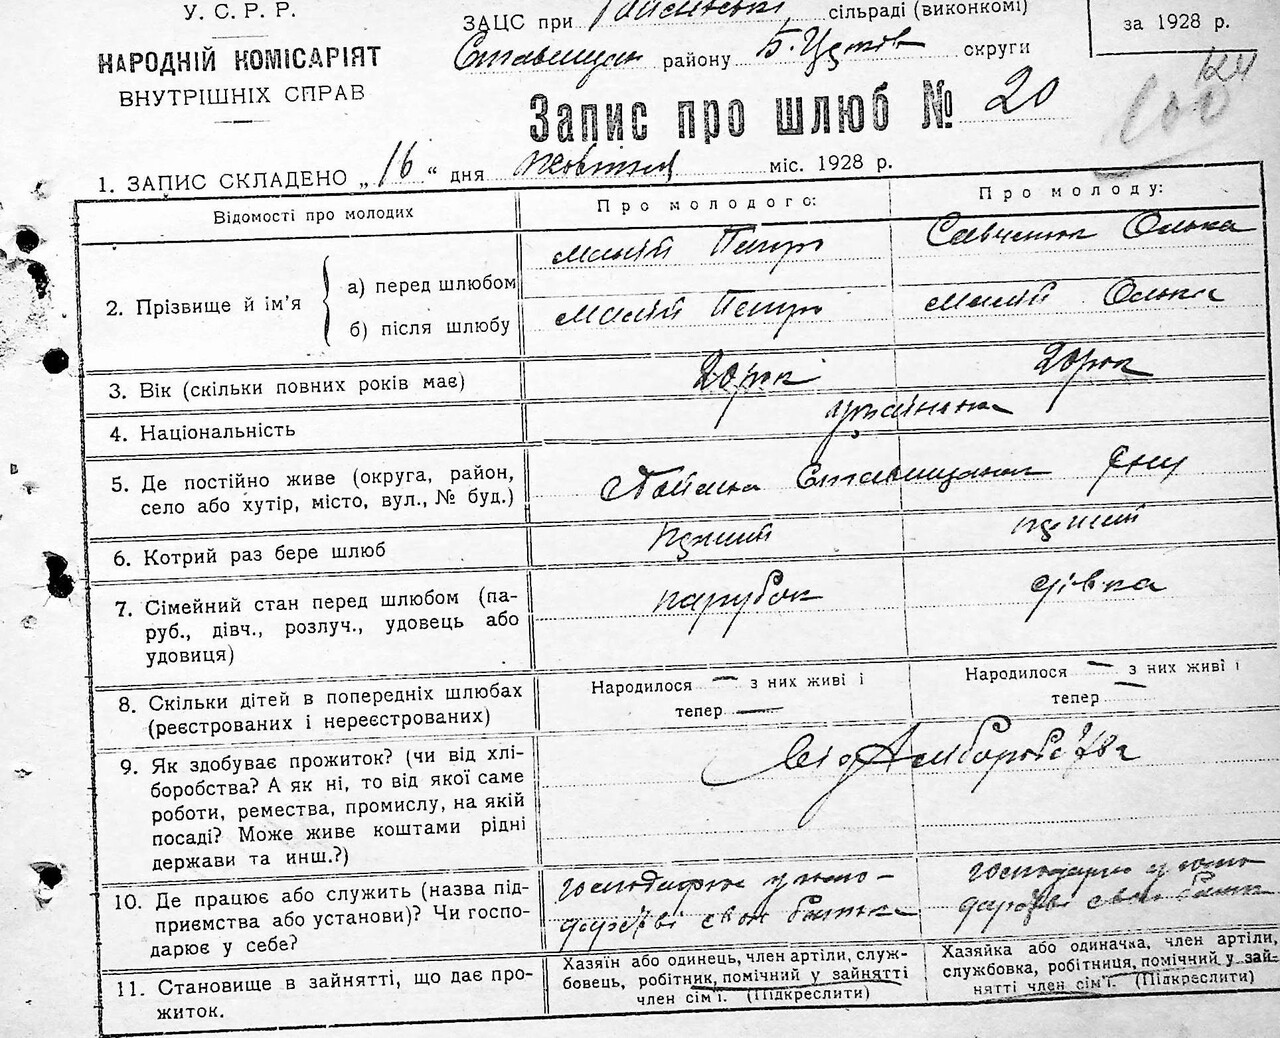 У. С. Р. Р.
НАРОДНІЙ КОМІСАРІЯТ
ВНУТРІШНІХ СПРАВ
ЗАЦС при сільраді (виконкомі)
Ставищан району Б. Церків округи
за 1928 р.
Запис про шлюб № 20
1. ЗАПИС СКЛАДЕНО „16“ дня жовтня міс. 1928 р.
Відомості про молодих
Про молодого:
Про молоду:
2. Прізвище й ім'я
а) перед шлюбом
Малій Петро
Савченюк Олька
б) після шлюбу
Малій Петро
Малій Олька
3. Вік (скільки повних років має)
20 рок
20 рок
4. Національність
україн
5. Де постійно живе (округа, район,
село або хутір, місто, вул., № буд.)
Ставищанськ
6. Котрий раз бере шлюб
перший
перший
7. Сімейний стан перед шлюбом (па-
руб., дівч., розлуч., удовець або
удовиця)
парубок
дівка
8. Скільки дітей в попередніх шлюбах
(реєстрованих і нереєстрованих)
Народилося — з них живі і
тепер —
Народилося — з них живі і
тепер —
9. Як здобуває прожиток? (чи від хлі-
боробства? А як ні, то від якої саме
роботи, ремества, промислу, на якій
посаді? Може живе коштами рідні
держави та инш.?)
від хліборобства
10. Де працює або служить (назва під-
приємства або установи)? Чи госпо-
дарює у себе?
господарює у госпо-
дарстві свого батька
господарює у госпо
дарстві свого батька
11. Становище в зайнятті, що дає про-
житок.
Хазяїн або одинець, член артіли, служ-
бовець, робітник, помічний у зайнятті
член сім'ї. (Підкреслити)
Хазяйка або одиначка, член артіли,
службовка, робітниця, помічний у зай-
нятті член сім'ї. (Підкреслити)